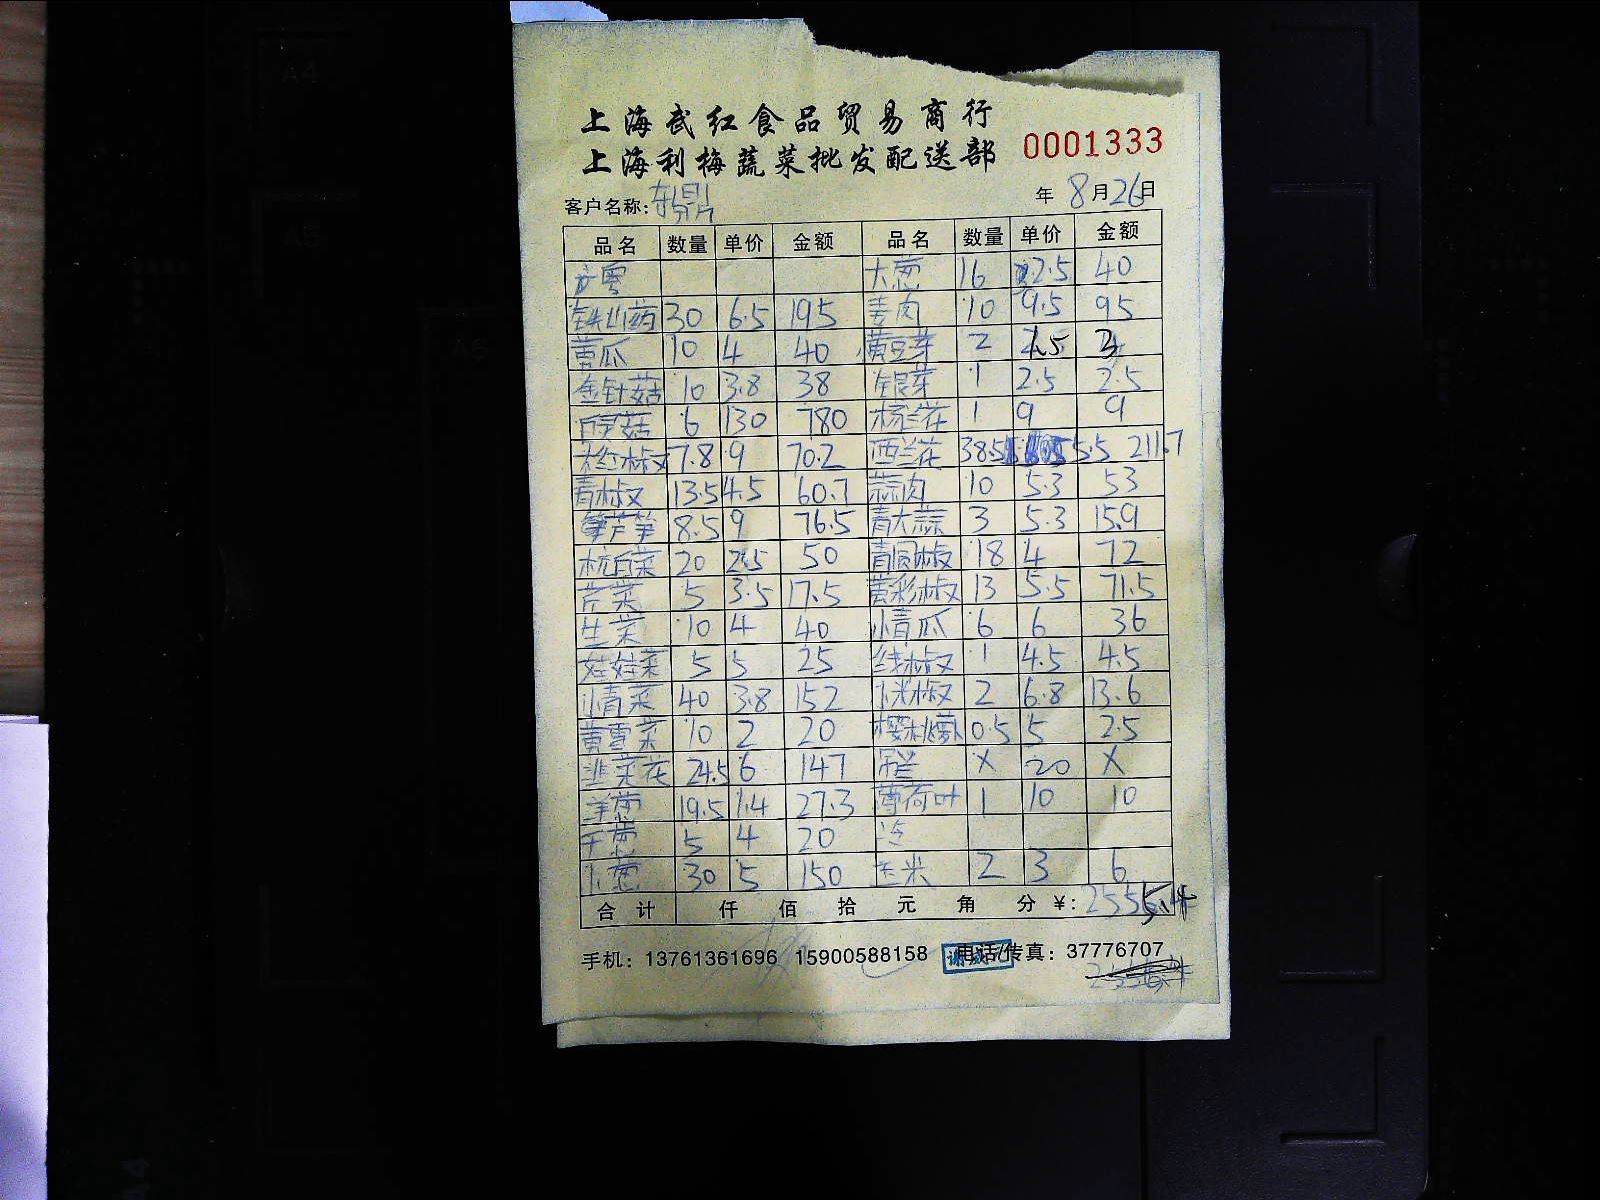 上海武红食品贸易商行
上海利梅蔬菜批发配送部
0001333
客户名称: 东鼎 年 8月26日
品名 数量 单价 金额 品名 数量 单价 金额
粤 大葱 16 2.5 40
铁山药 30 6.5 195 姜肉 10 9.5 95
黄瓜 10 4 40 黄豆芽 2 1.5 3
金针菇 10 3.8 38 银芽 1 2.5 2.5
菇 6 130 780 杨兰花 1 9 9
红椒 7.8 9 70.2 西兰花 38.5 5.5 211.7
青椒 13.5 4.5 60.7 蒜肉 10 5.3 53
芦笋 8.5 9 76.5 青大蒜 3 5.3 15.9
杭白菜 20 2.5 50 青圆椒 18 4 72
芹菜 5 3.5 17.5 黄彩椒 13 5.5 71.5
生菜 10 4 40 小青瓜 6 6 36
娃娃菜 5 5 25 线椒 1 4.5 4.5
小青菜 40 3.8 152 小米椒 2 6.8 13.6
黄雪菜 10 2 20 樱桃萝卜 0.5 5 2.5
韭菜花 24.5 6 147 X 20 X
洋葱 19.5 1.4 27.3 薄荷叶 1 10 10
干葱 5 4 20 冷
小葱 30 5 150 玉米 2 3 6
合计 仟 佰 拾 元 角 分 ¥: 2555.4
手机: 13761361696 15900588158 电话/传真: 37776707